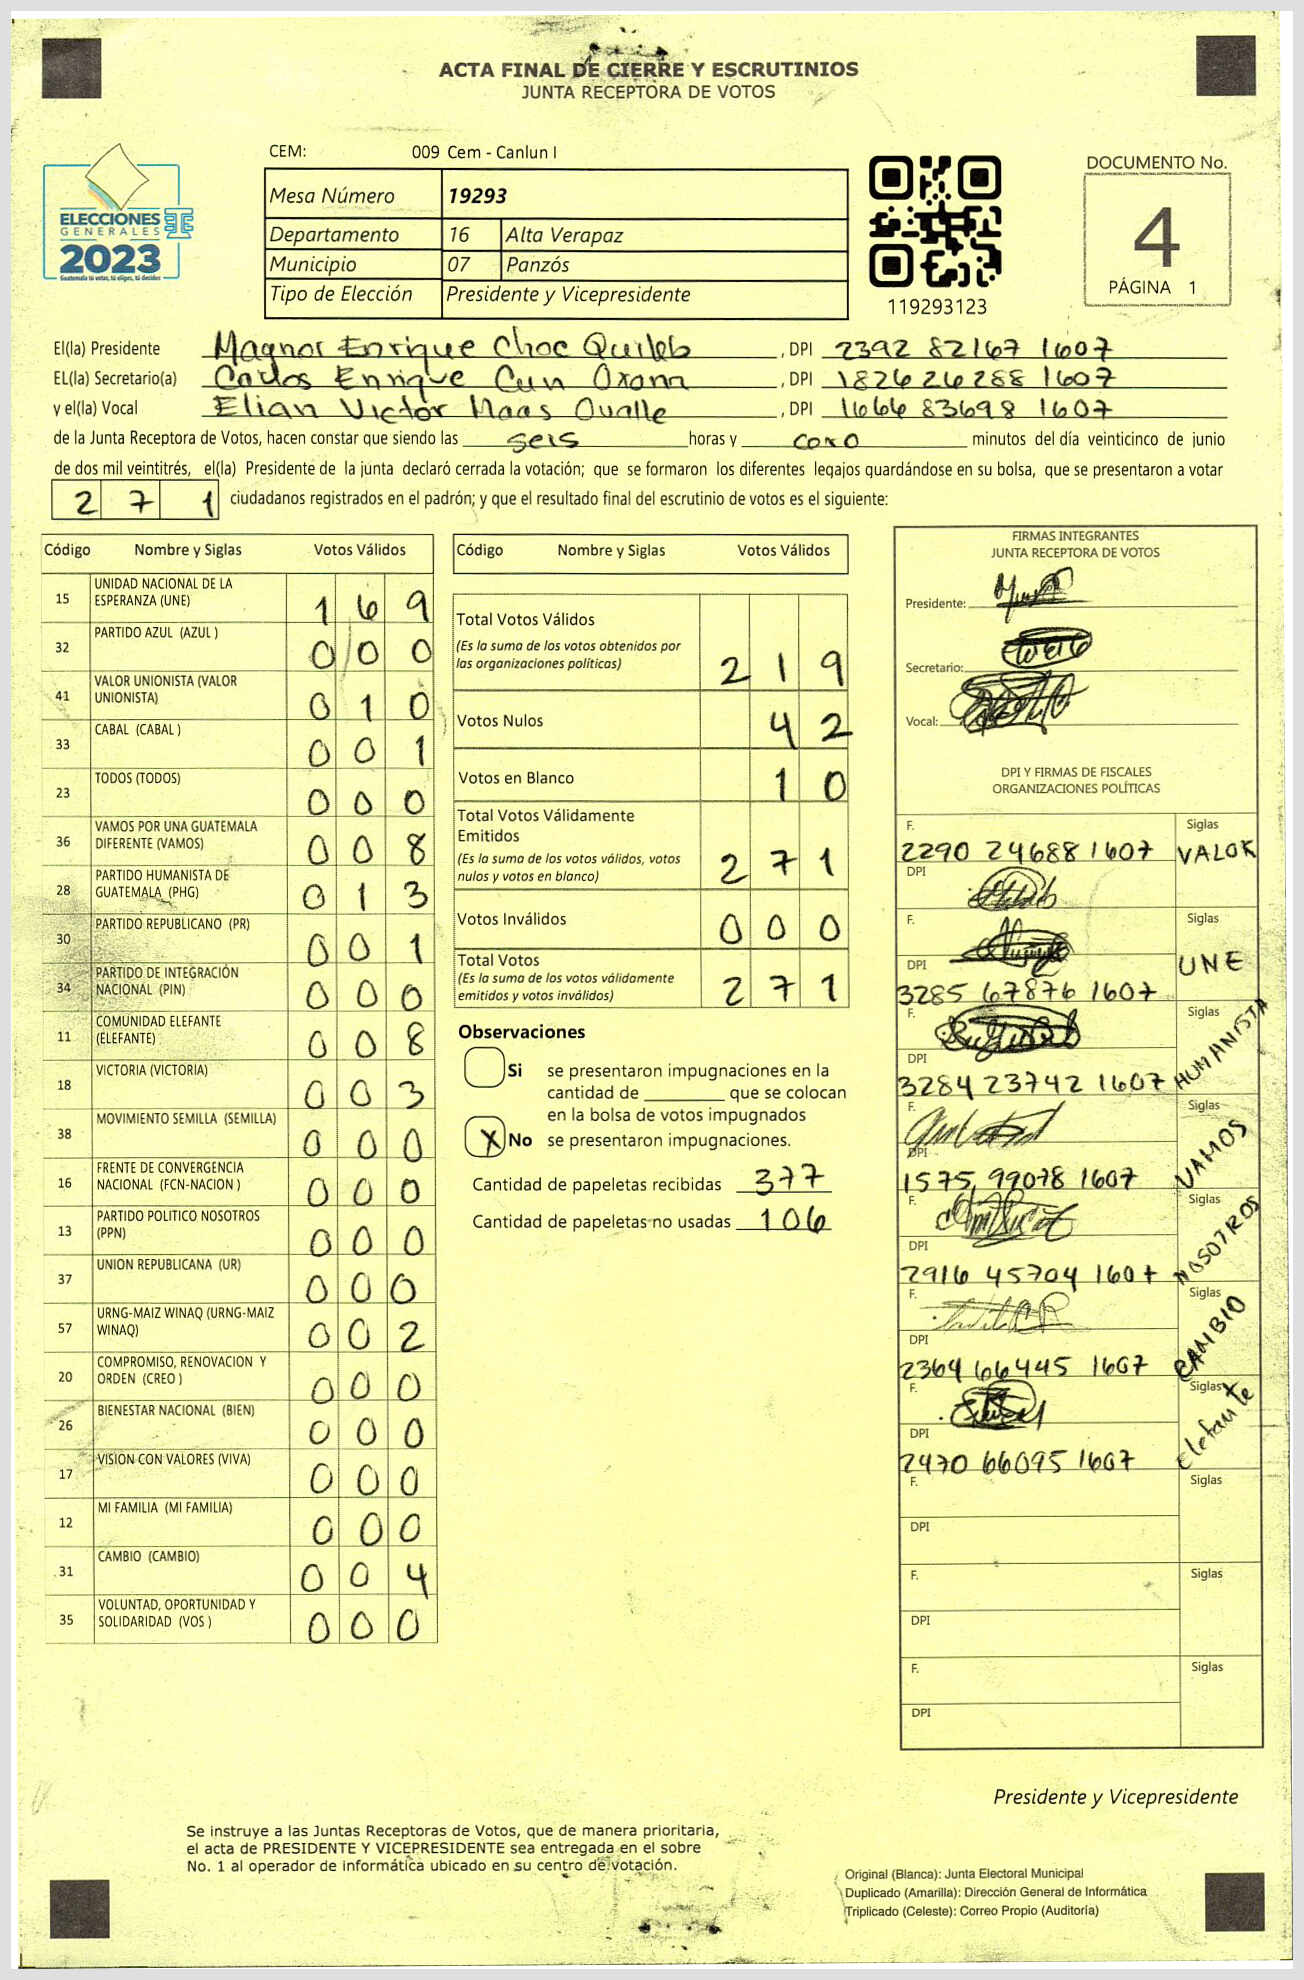 ACTA FINAL DE CIERRE Y ESCRUTINIOS
JUNTA RECEPTORA DE VOTOS
ELECCIONES
GENERALES
2023
Guatemala tú votas, tú eliges, tú decides
CEM: 009 Cem - Canlun I
Mesa Número 19293
Departamento 16 Alta Verapaz
Municipio 07 Panzós
Tipo de Elección Presidente y Vicepresidente
119293123
DOCUMENTO No.
4
PÁGINA 1
El(la) Presidente Magnor Enrique Choc Quileb , DPI 2392 82167 1607
EL(la) Secretario(a) Carlos Enrique Cun Oxom , DPI 1826 26288 1607
y el(la) Vocal Elian Victor Maas Ovalle , DPI 1666 83698 1607
de la Junta Receptora de Votos, hacen constar que siendo las seis horas y cero minutos del día veinticinco de junio
de dos mil veintitrés, el(la) Presidente de la junta declaró cerrada la votación; que se formaron los diferentes legajos guardándose en su bolsa, que se presentaron a votar
2 7 1 ciudadanos registrados en el padrón; y que el resultado final del escrutinio de votos es el siguiente:
Código Nombre y Siglas Votos Válidos
15 UNIDAD NACIONAL DE LA ESPERANZA (UNE) 1 6 9
32 PARTIDO AZUL (AZUL ) 0 0 0
41 VALOR UNIONISTA (VALOR UNIONISTA) 0 1 0
33 CABAL (CABAL ) 0 0 1
23 TODOS (TODOS) 0 0 0
36 VAMOS POR UNA GUATEMALA DIFERENTE (VAMOS) 0 0 8
28 PARTIDO HUMANISTA DE GUATEMALA (PHG) 0 1 3
30 PARTIDO REPUBLICANO (PR) 0 0 1
34 PARTIDO DE INTEGRACIÓN NACIONAL (PIN) 0 0 0
11 COMUNIDAD ELEFANTE (ELEFANTE) 0 0 8
18 VICTORIA (VICTORIA) 0 0 3
38 MOVIMIENTO SEMILLA (SEMILLA) 0 0 0
16 FRENTE DE CONVERGENCIA NACIONAL (FCN-NACION ) 0 0 0
13 PARTIDO POLITICO NOSOTROS (PPN) 0 0 0
37 UNION REPUBLICANA (UR) 0 0 0
57 URNG-MAIZ WINAQ (URNG-MAIZ WINAQ) 0 0 2
20 COMPROMISO, RENOVACION Y ORDEN (CREO ) 0 0 0
26 BIENESTAR NACIONAL (BIEN) 0 0 0
17 VISION CON VALORES (VIVA) 0 0 0
12 MI FAMILIA (MI FAMILIA) 0 0 0
31 CAMBIO (CAMBIO) 0 0 4
35 VOLUNTAD, OPORTUNIDAD Y SOLIDARIDAD (VOS ) 0 0 0
Código Nombre y Siglas Votos Válidos
Total Votos Válidos
(Es la suma de los votos obtenidos por
las organizaciones políticas) 2 1 9
Votos Nulos 4 2
Votos en Blanco 1 0
Total Votos Válidamente
Emitidos
(Es la suma de los votos válidos, votos
nulos y votos en blanco) 2 7 1
Votos Inválidos 0 0 0
Total Votos
(Es la suma de los votos válidamente
emitidos y votos inválidos) 2 7 1
Observaciones
Si se presentaron impugnaciones en la
cantidad de ________ que se colocan
en la bolsa de votos impugnados
X No se presentaron impugnaciones.
Cantidad de papeletas recibidas 377
Cantidad de papeletas no usadas 106
FIRMAS INTEGRANTES
JUNTA RECEPTORA DE VOTOS
Presidente:
Secretario:
Vocal:
DPI Y FIRMAS DE FISCALES
ORGANIZACIONES POLÍTICAS
F. Siglas
2290 24688 1607 VALOR
DPI
F. Siglas
DPI UNE
3285 67876 1607
F. Siglas
DPI HUMANISTA
3284 23742 1607
F. Siglas
DPI VAMOS
1575 99078 1607
F. Siglas
DPI NOSOTROS
2916 45704 1607
F. Siglas
DPI CAMBIO
2364 66445 1607
F. Siglas
DPI Elefante
2470 66095 1607
F. Siglas
DPI
F. Siglas
DPI
F. Siglas
DPI
Presidente y Vicepresidente
Se instruye a las Juntas Receptoras de Votos, que de manera prioritaria,
el acta de PRESIDENTE Y VICEPRESIDENTE sea entregada en el sobre
No. 1 al operador de informática ubicado en su centro de votación.
Original (Blanca): Junta Electoral Municipal
Duplicado (Amarilla): Dirección General de Informática
Triplicado (Celeste): Correo Propio (Auditoría)